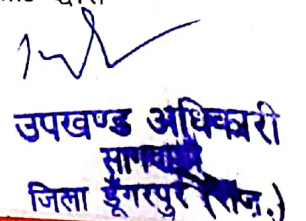 द्वारा
उपखण्ड अधिकारी
सागवाड़ा
जिला डूंगरपुर (राज.)